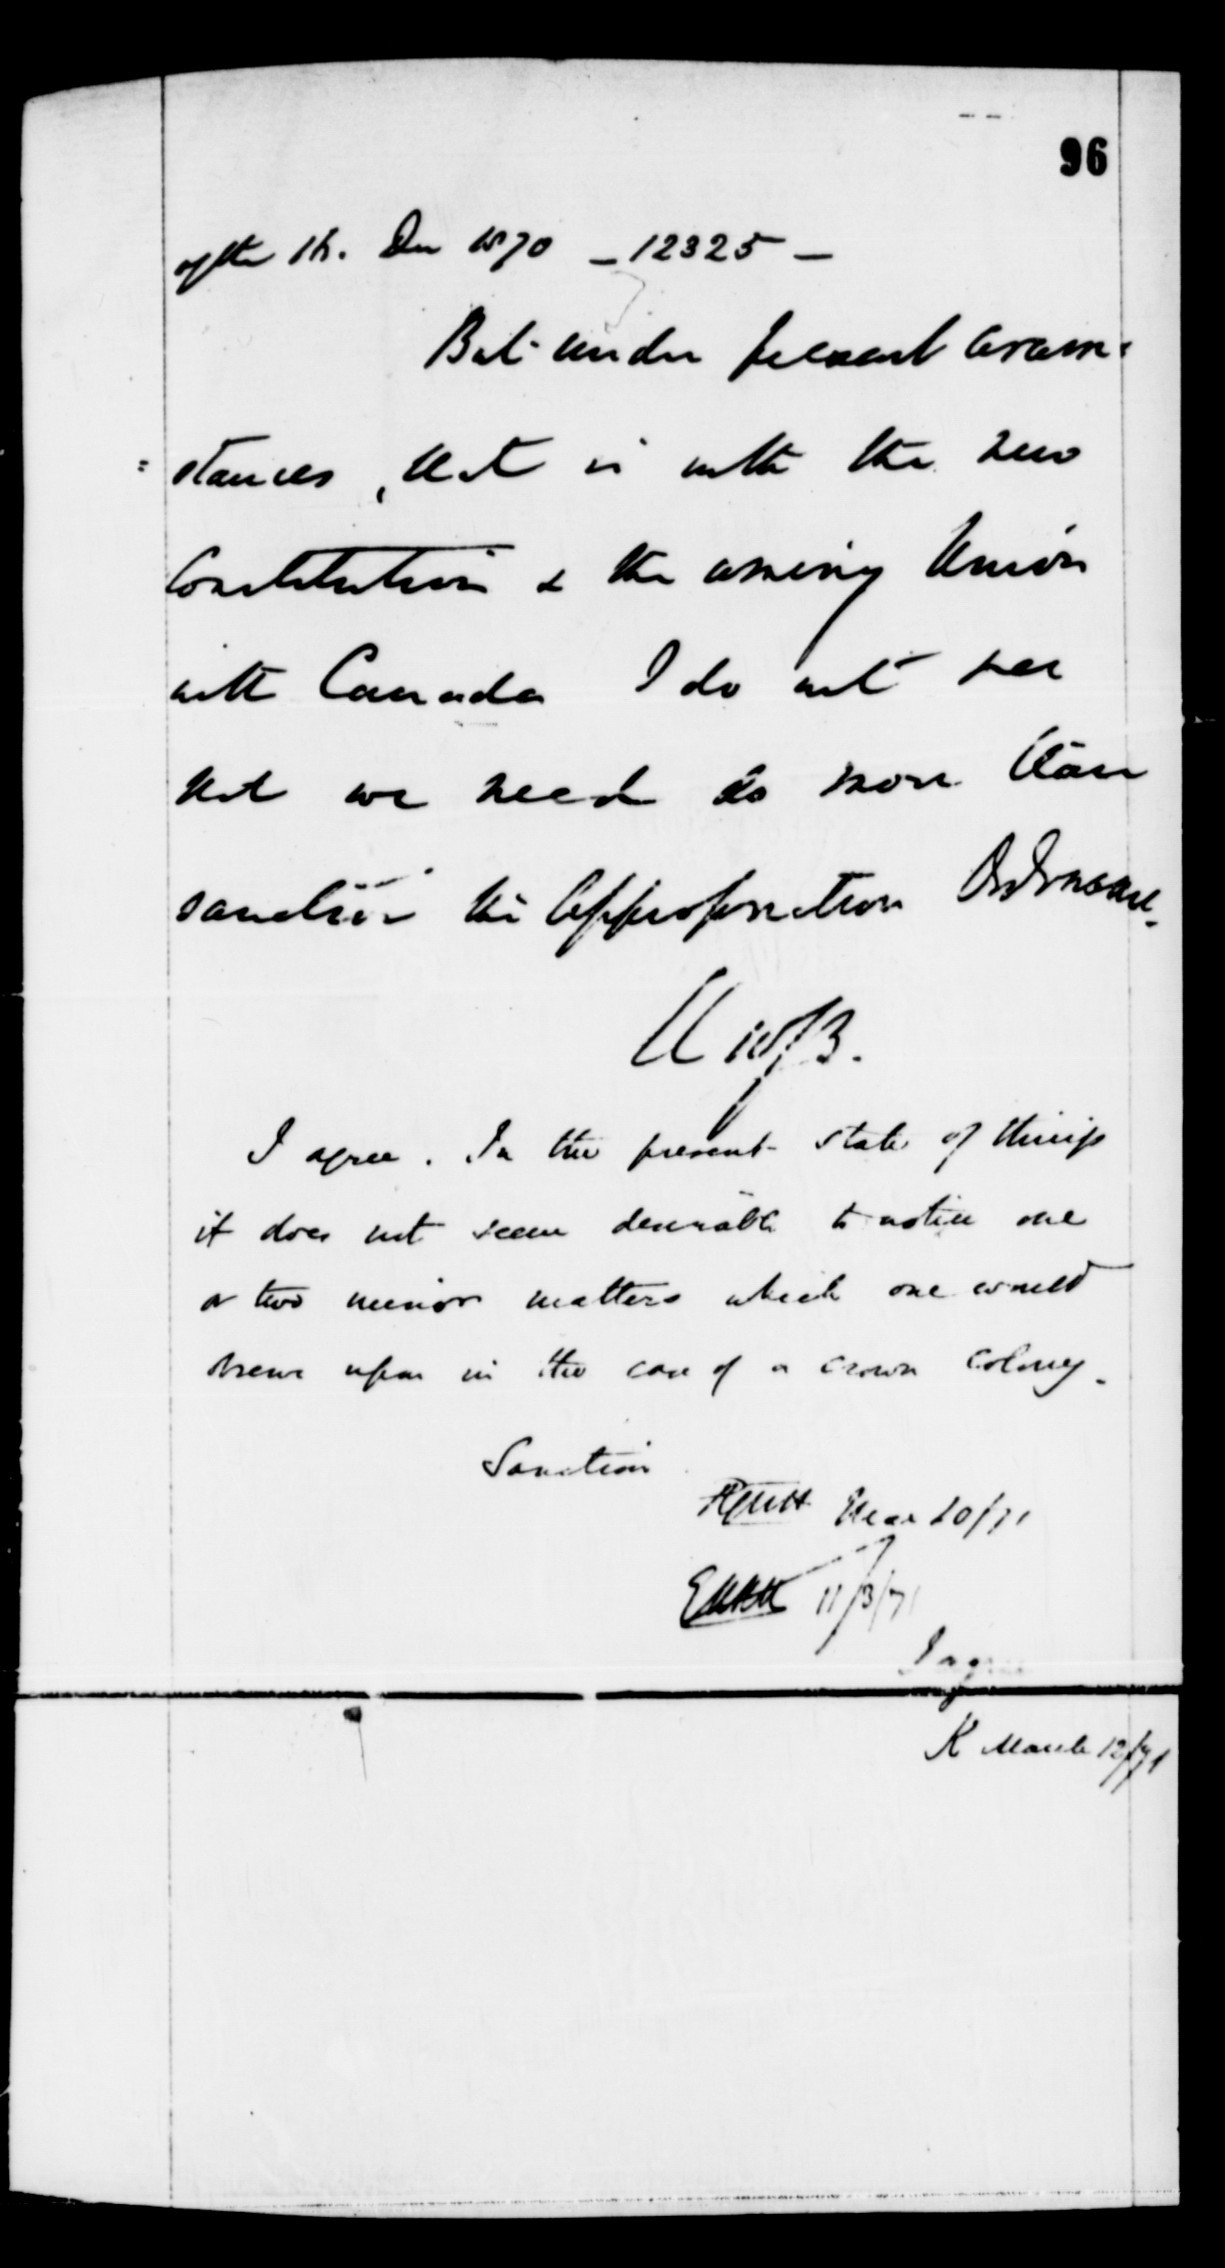 96
of the 1st. Dec 1870 - 12325 -
But under present circum=
=stances, that is with the new
Constitution & the coming Union
with Canada I do not see
that we need do more than
sanction the Appropriation Ordinance.
10/3.
I agree. In the present state of things
it does not seem desirable to notice one
or two minor matters which one would
upon in the case of a crown colony.
Sanction
10/71
11/3/71
I agree
K March 12/71